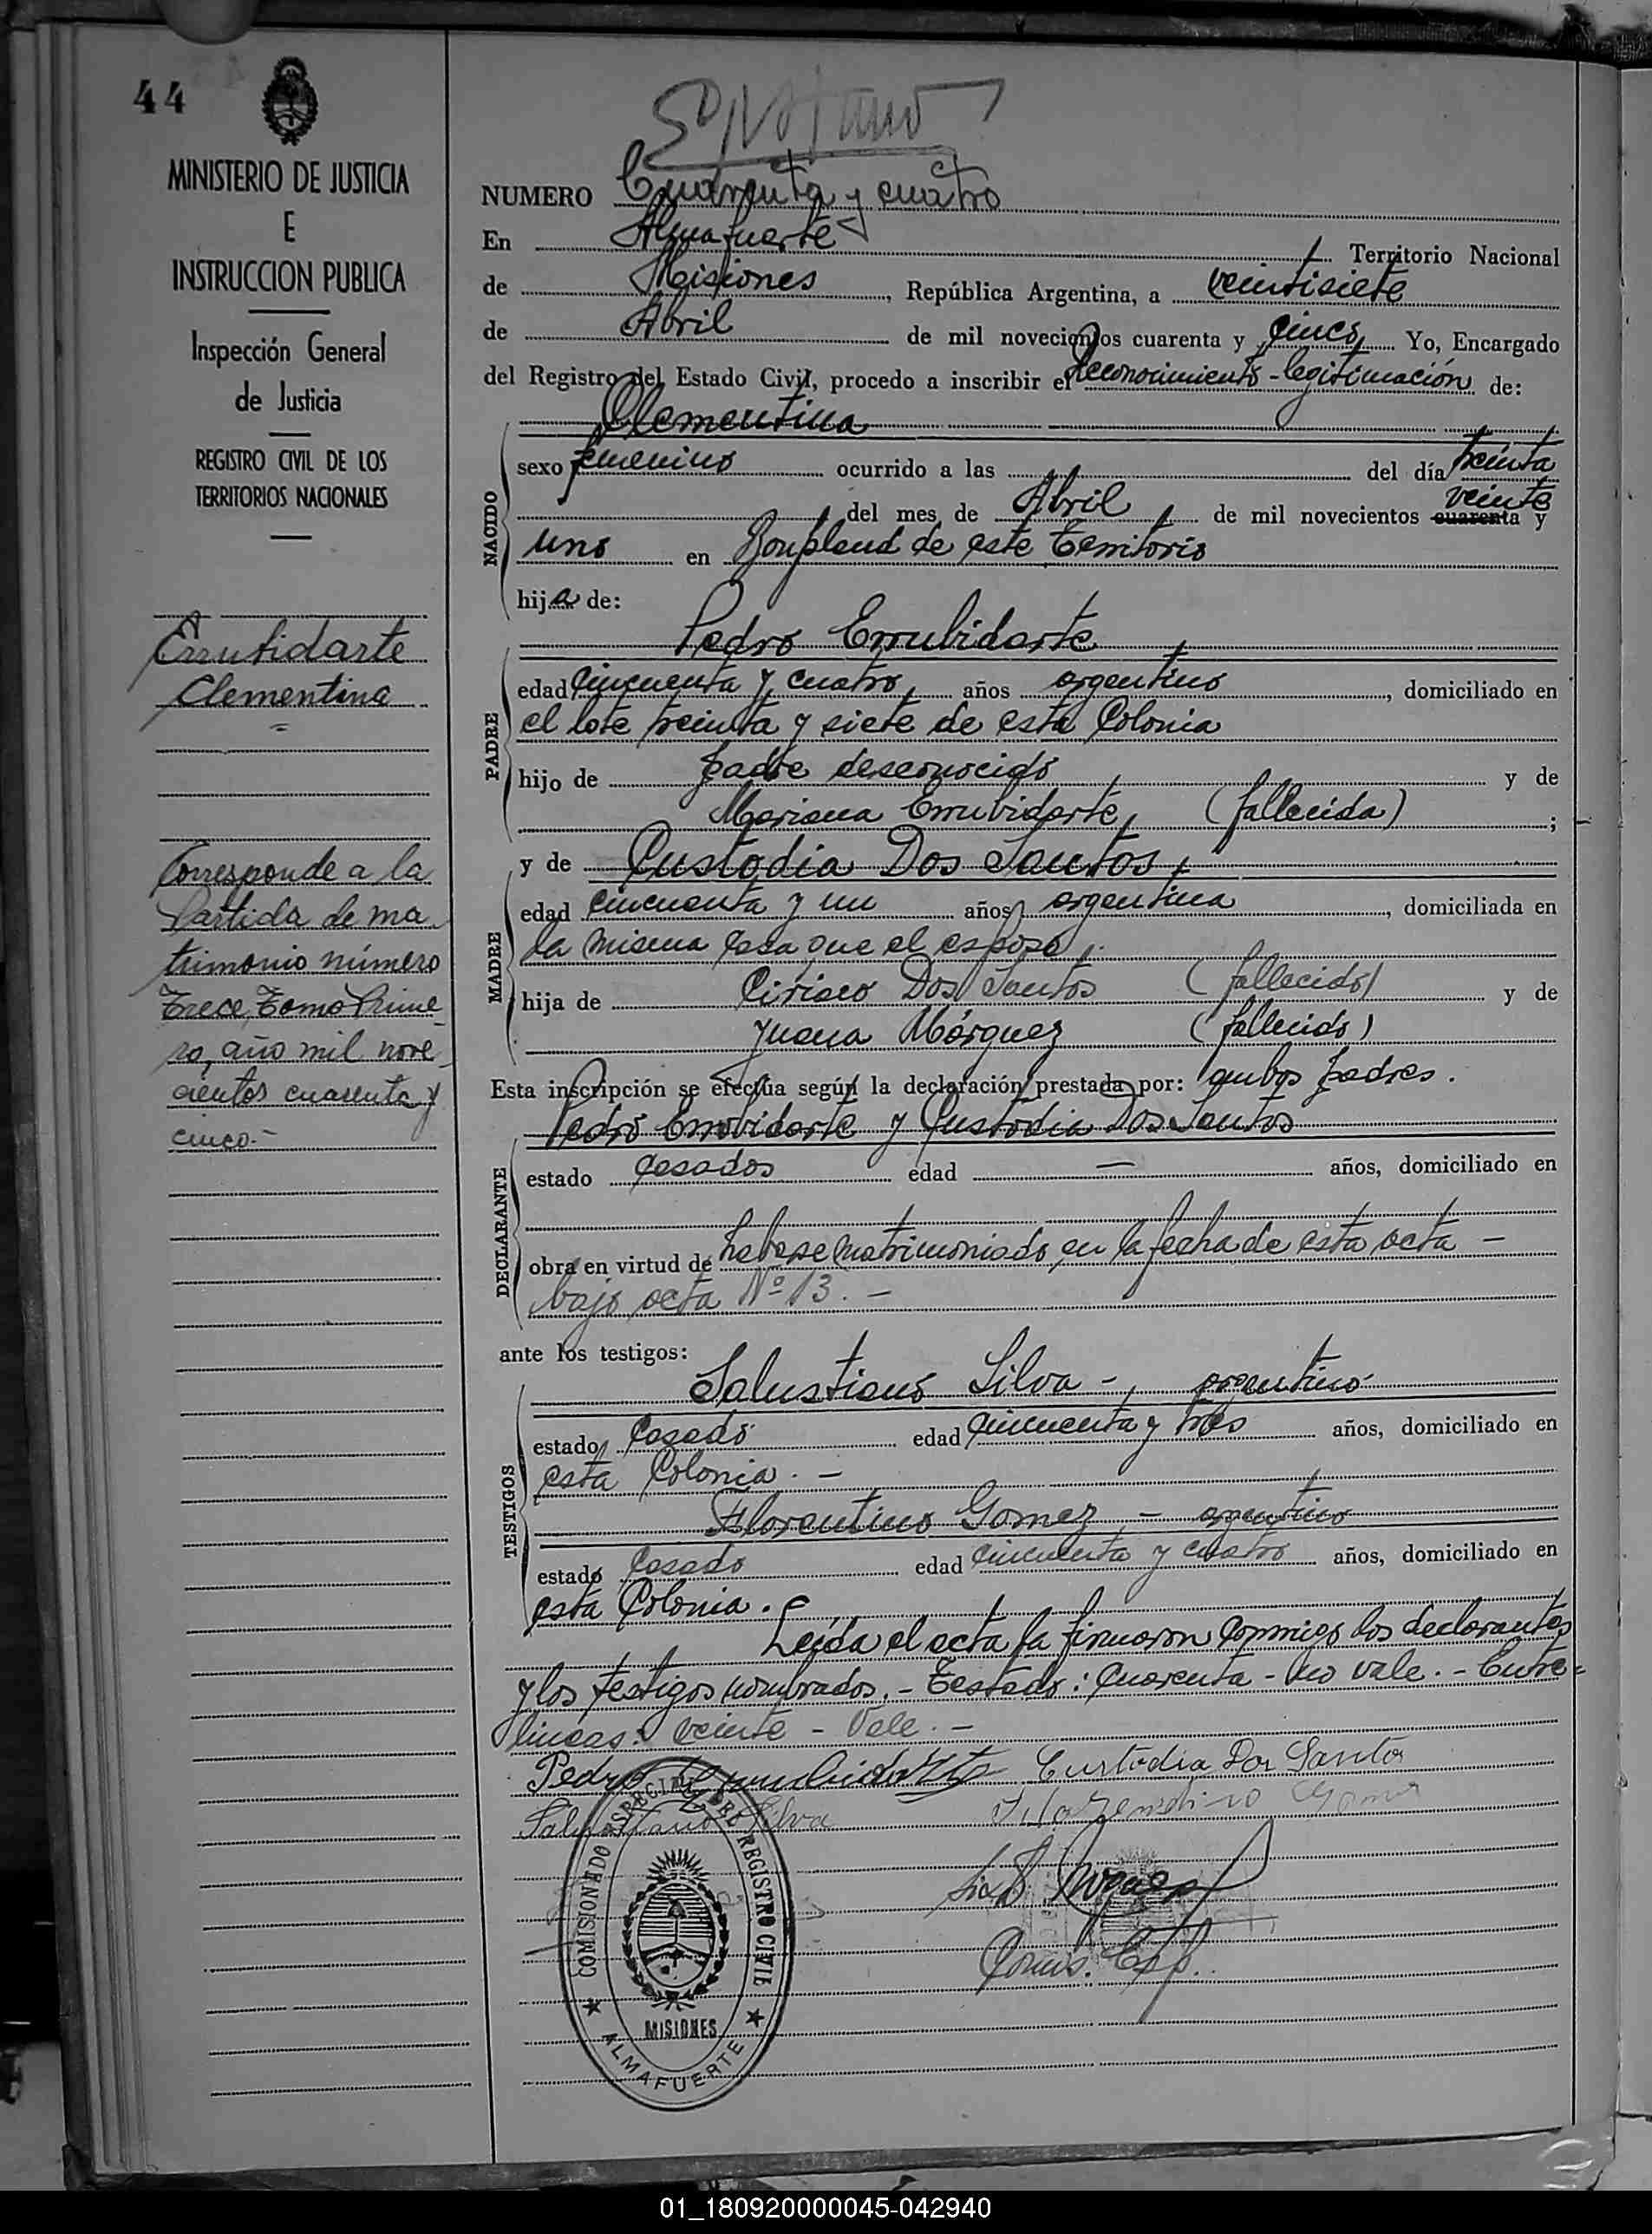 44
MINISTERIO DE JUSTICIA
E
INSTRUCCION PUBLICA
Inspección General
de Justicia
REGISTRO CIVIL DE LOS
TERRITORIOS NACIONALES
Errubidarte
Clementina
Corresponde a la
Partida de ma
trimonio número
Trece, Tomo Prime
ro, año mil nove
cientos cuarenta y
cinco.-
NUMERO Cuarenta y cuatro
En Almafuerte Territorio Nacional
de Misiones, República Argentina, a veintisiete
de Abril de mil novecientos cuarenta y cinco, Yo, Encargado
del Registro del Estado Civil, procedo a inscribir el Reconocimiento-legitimación de:
Clementina
NACIDO
sexo femenino ocurrido a las del día treinta
veinte
del mes de Abril, de mil novecientos cuarenta y
uno en Bonpland de este Territorio
hija de:
Pedro Errubidarte
PADRE
edad cincuenta y cuatro, años argentino, domiciliado en
el lote treinta y siete de esta Colonia
hijo de padre desconocido, y de
Mariana Errubidarte, (fallecida);
y de Custodia Dos Santos,
MADRE
edad cincuenta y un años argentina, domiciliada en
la misma casa que el esposo,
hija de Ciriaco Dos Santos (fallecido) y de
Juana Márquez (fallecido)
Esta inscripción se efectúa según la declaración prestada por: ambos padres.
DECLARANTE
Pedro Errubidarte y Custodia Dos Santos
estado casados edad — años, domiciliado en
obra en virtud de haberse matrimoniado en la fecha de esta acta -
bajo acta Nº 13. -
ante los testigos:
TESTIGOS
Salustiano Silva -, argentino
estado casado edad cincuenta y tres años, domiciliado en
esta Colonia. -
Florentino Gomez, - argentino
estado casado edad cincuenta y cuatro años, domiciliado en
esta Colonia.
Leída el acta la firmaron conmigo los declarantes
y los testigos nombrados. - Testado: cuarenta - no vale. - Entre=
lineas: veinte - Vale. -
Pedro Errubidarte Custodia Dos Santos
Salustiano Silva
COMISIONADO ESPECIAL DEL REGISTRO CIVIL
MISIONES
ALMAFUERTE
Comis. Esp.
01_180920000045-042940